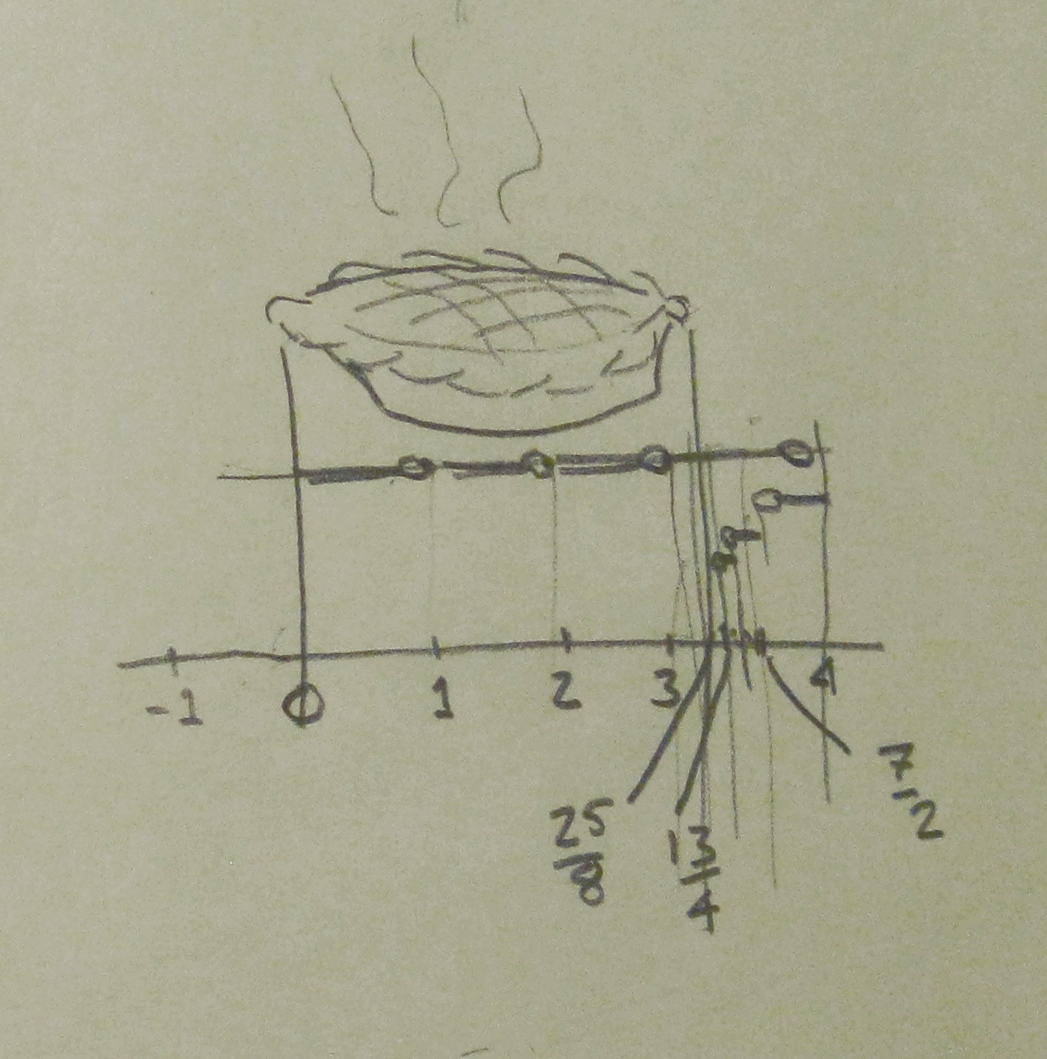 -1 0 1 2 3 4
25/8 13/4 7/2